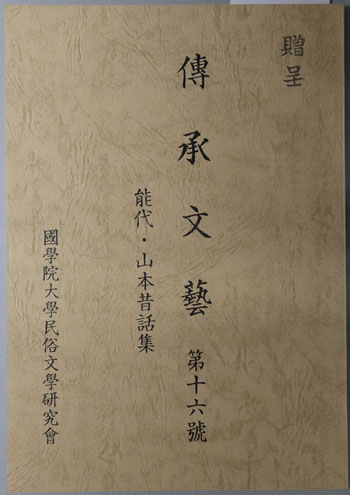 贈呈
傳承文藝 第十六號
能代・山本昔話集
國學院大學民俗文學研究會